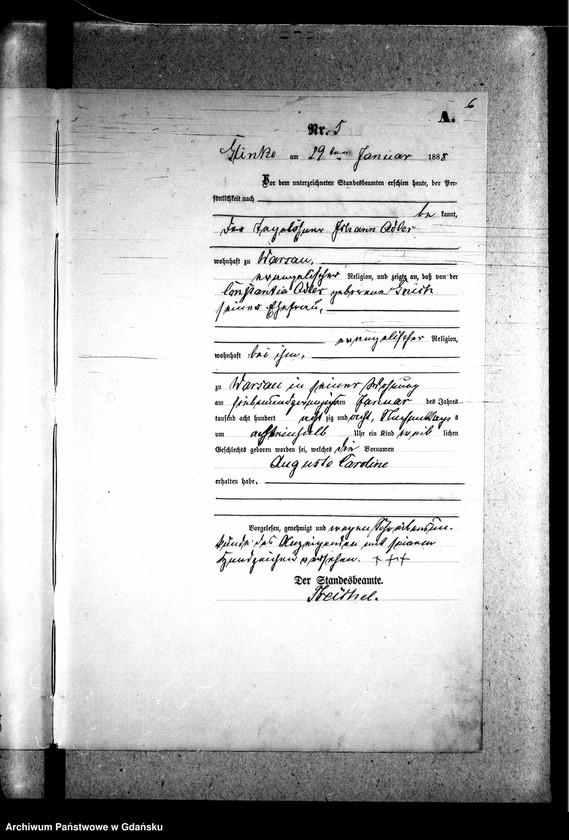 6
A.
Nr. 5
Glinke am 29 ten Januar 1888
Vor dem unterzeichneten Standesbeamten erschien heute, der Per-
sönlichkeit nach
be kannt,
der Tagelöhner Johann Adler
wohnhaft zu Warsau,
evangelischer Religion, und zeigte an, daß von der
Constantia Adler geborene
seiner Ehefrau,
evangelischer Religion,
wohnhaft bei ihm,
zu Warsau in seiner Wohnung
am siebenundzwanzigsten Januar des Jahres
tausend acht hundert acht zig und acht, Nachmittags
um Uhr ein Kind weib lichen
Geschlechts geboren worden sei, welches die Vornamen
Auguste Caroline
erhalten habe.
Vorgelesen, genehmigt und wegen Schreibensun-
kunde des Anzeigenden mit seinem
Handzeichen versehen. +++
Der Standesbeamte.
Archiwum Państwowe w Gdańsku